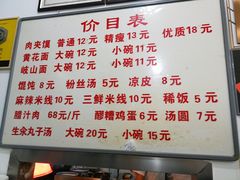 价目表
肉夹馍 普通12元 精瘦13元 优质18元
黄花面 大碗12元 小碗11元
岐山面 大碗12元 小碗11元
馄饨8元 粉丝汤5元 凉皮8元
麻辣米线10元 三鲜米线10元 稀饭5元
腊汁肉 68元/斤 醪糟鸡蛋6元 汤圆7元
生汆丸子汤 大碗20元 小碗15元